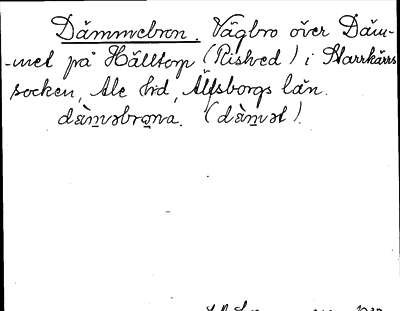 Dämmebron. Vägbro över Däm-
-met på Hälltorp (Rished) i Starrkärrs
socken, Ale hd, Älfsborgs län.
dämǝbrona. (dämǝt).